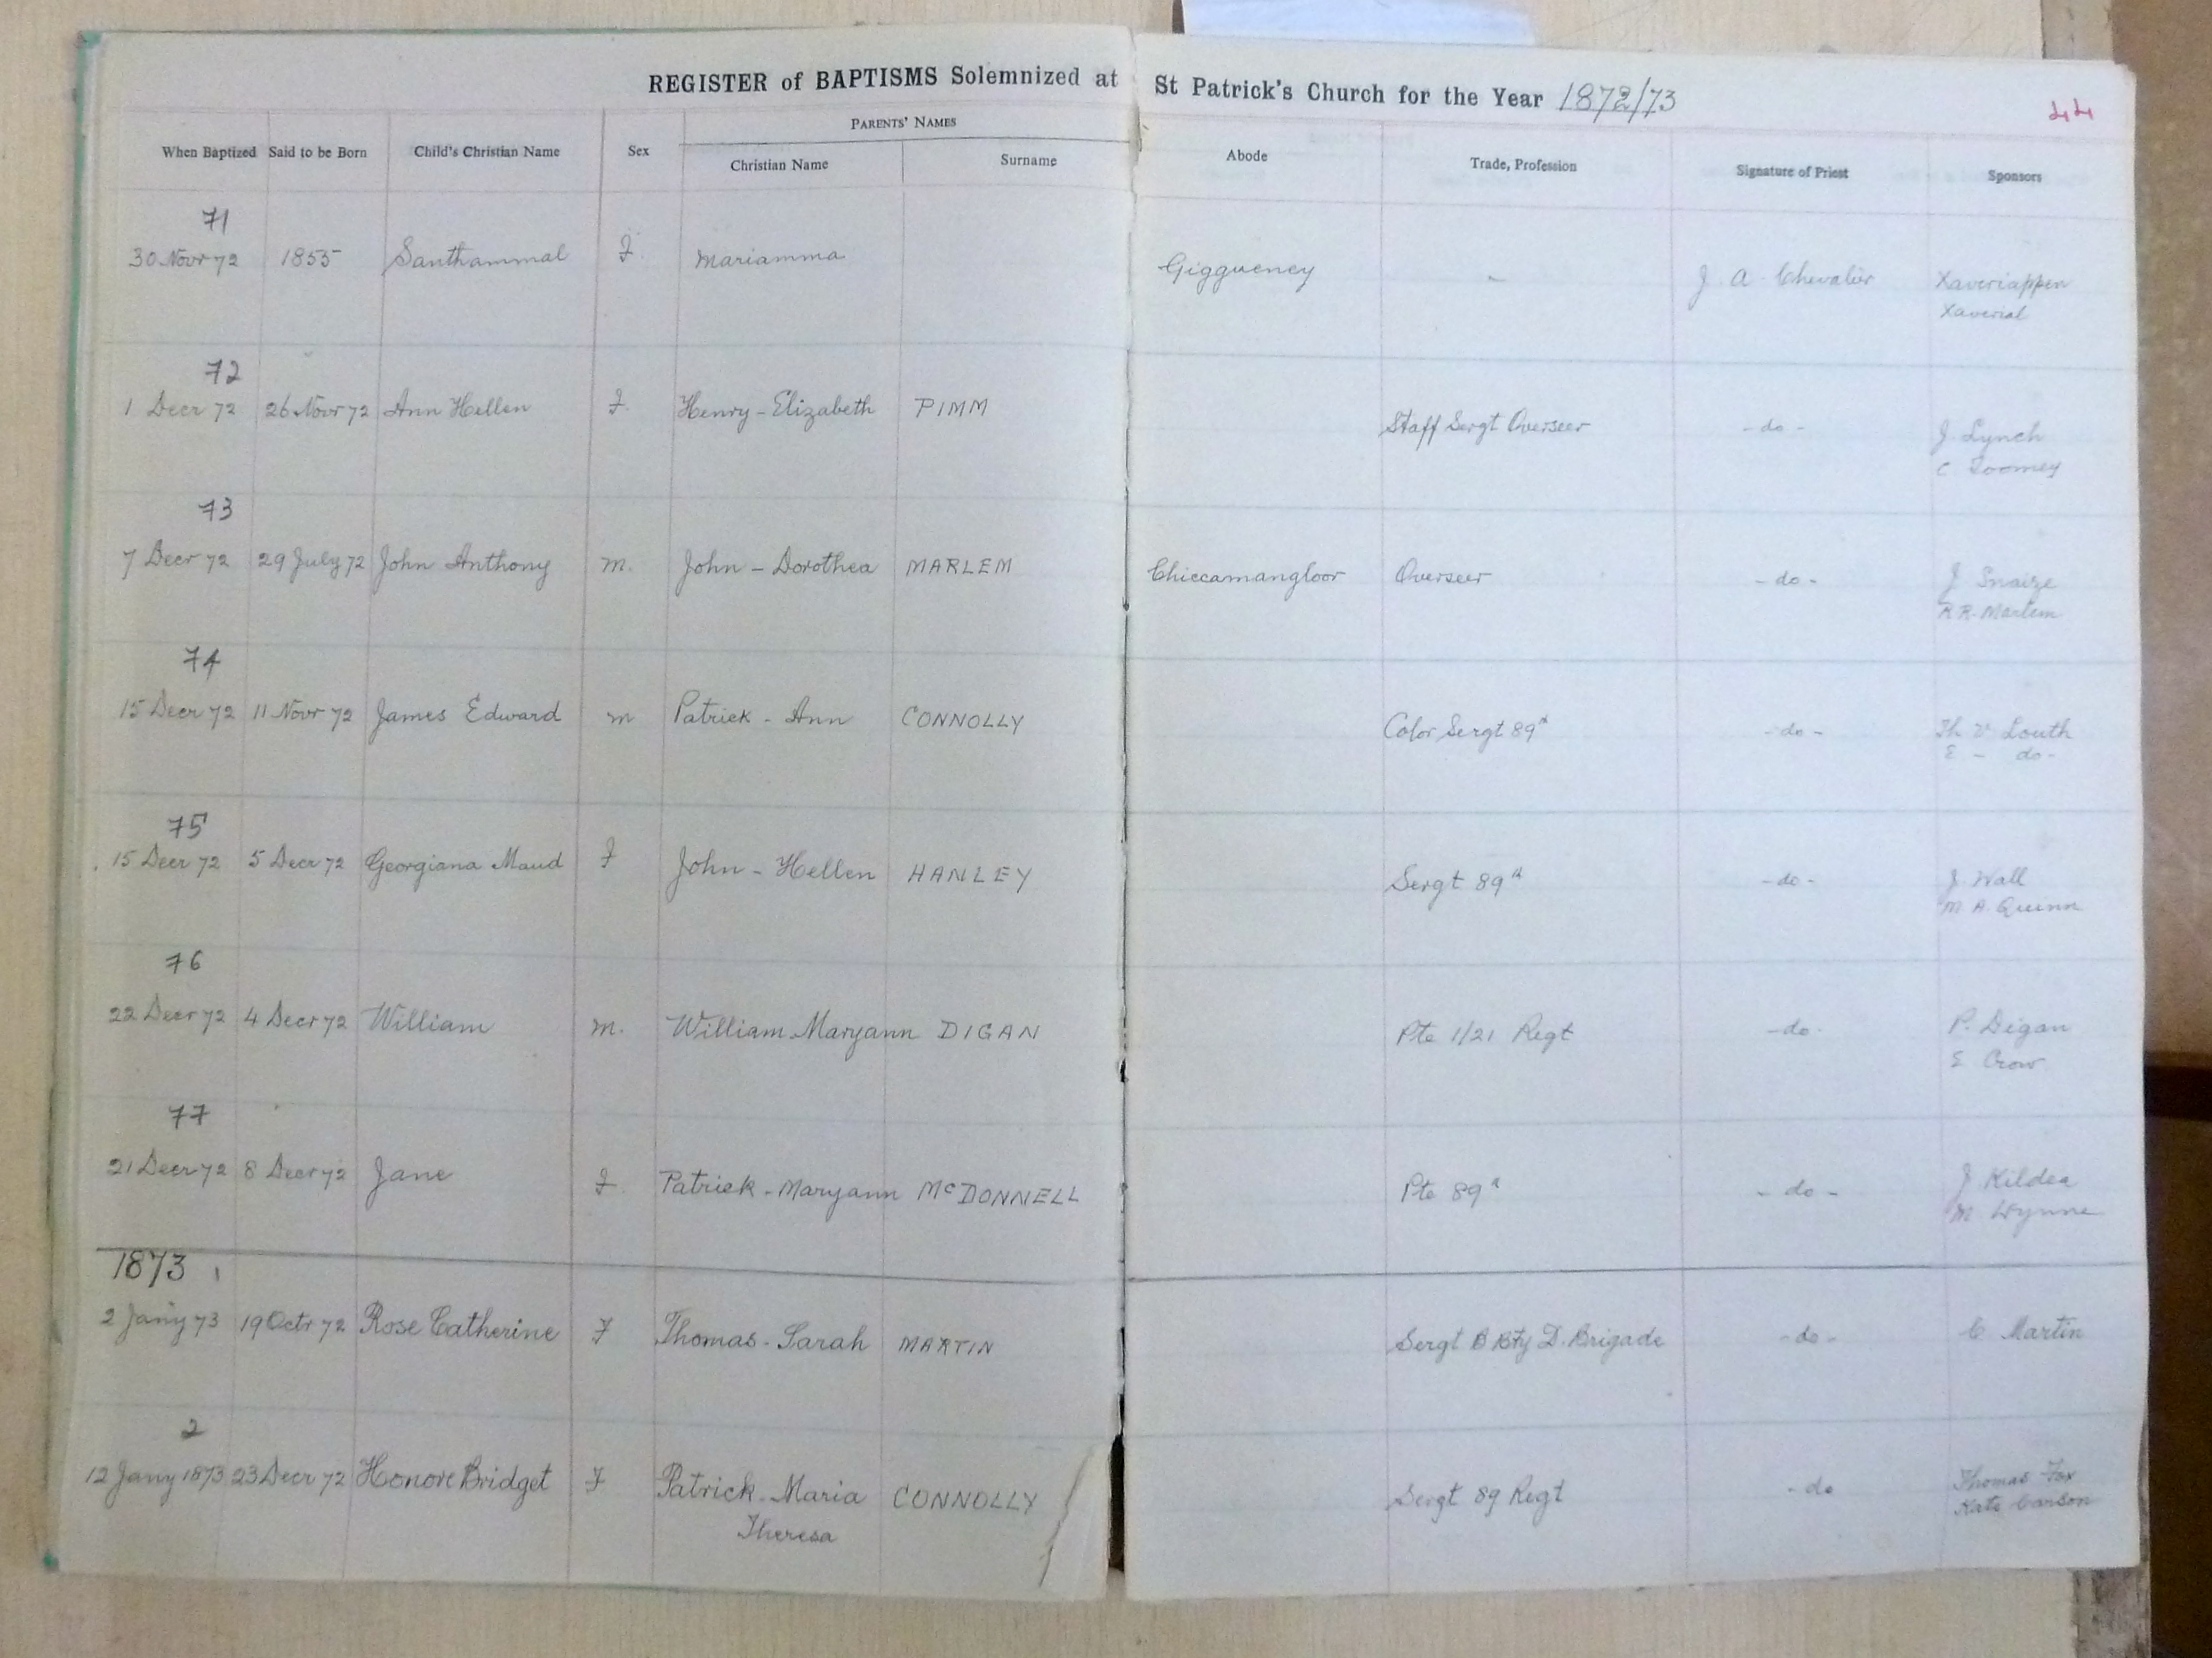 REGISTER of BAPTISMS Solemnized at St Patrick's Church for the Year 1872/73
44
PARENTS' NAMES
When Baptized Said to be Born Child's Christian Name Sex Christian Name Surname Abode Trade, Profession Signature of Priest Sponsors
71
30 Novr 72 1855 Santhammal F. Mariamma Giggueney - J. A. Chevalier Xaveriappen
Xaverial
72
1 Decr 72 26 Novr 72 Ann Hellen F. Henry - Elizabeth PIMM Staff Sergt Overseer - do - J Lynch
C Toomey
73
7 Decr 72 29 July 72 John Anthony m. John - Dorothea MARLEM Chiccamangloor Overseer - do - J Snaize
R R. Marlem
74
15 Decr 72 11 Novr 72 James Edward m Patrick - Ann CONNOLLY Color Sergt 89th - do - Th V Louth
E - do -
75
15 Decr 72 5 Decr 72 Georgiana Maud F John - Hellen HANLEY Sergt 89th - do - J Wall
M A. Quinn
76
22 Decr 72 4 Decr 72 William m. William - Maryann DIGAN Pte 1/21 Regt - do - P. Digan
E Crow
77
21 Decr 72 8 Decr 72 Jane F. Patrick - Maryann McDONNELL Pte 89th - do - J Kildea
M Wynne
1873 1
2 Jany 73 19 Octr 72 Rose Catherine F Thomas - Sarah MARTIN Sergt B Bty D. Brigade - do - C Martin
2
12 Jany 1873 23 Decr 72 Honore Bridget F Patrick - Maria CONNOLLY Sergt 89 Regt - do Thomas Fox
Theresa Kate Carson